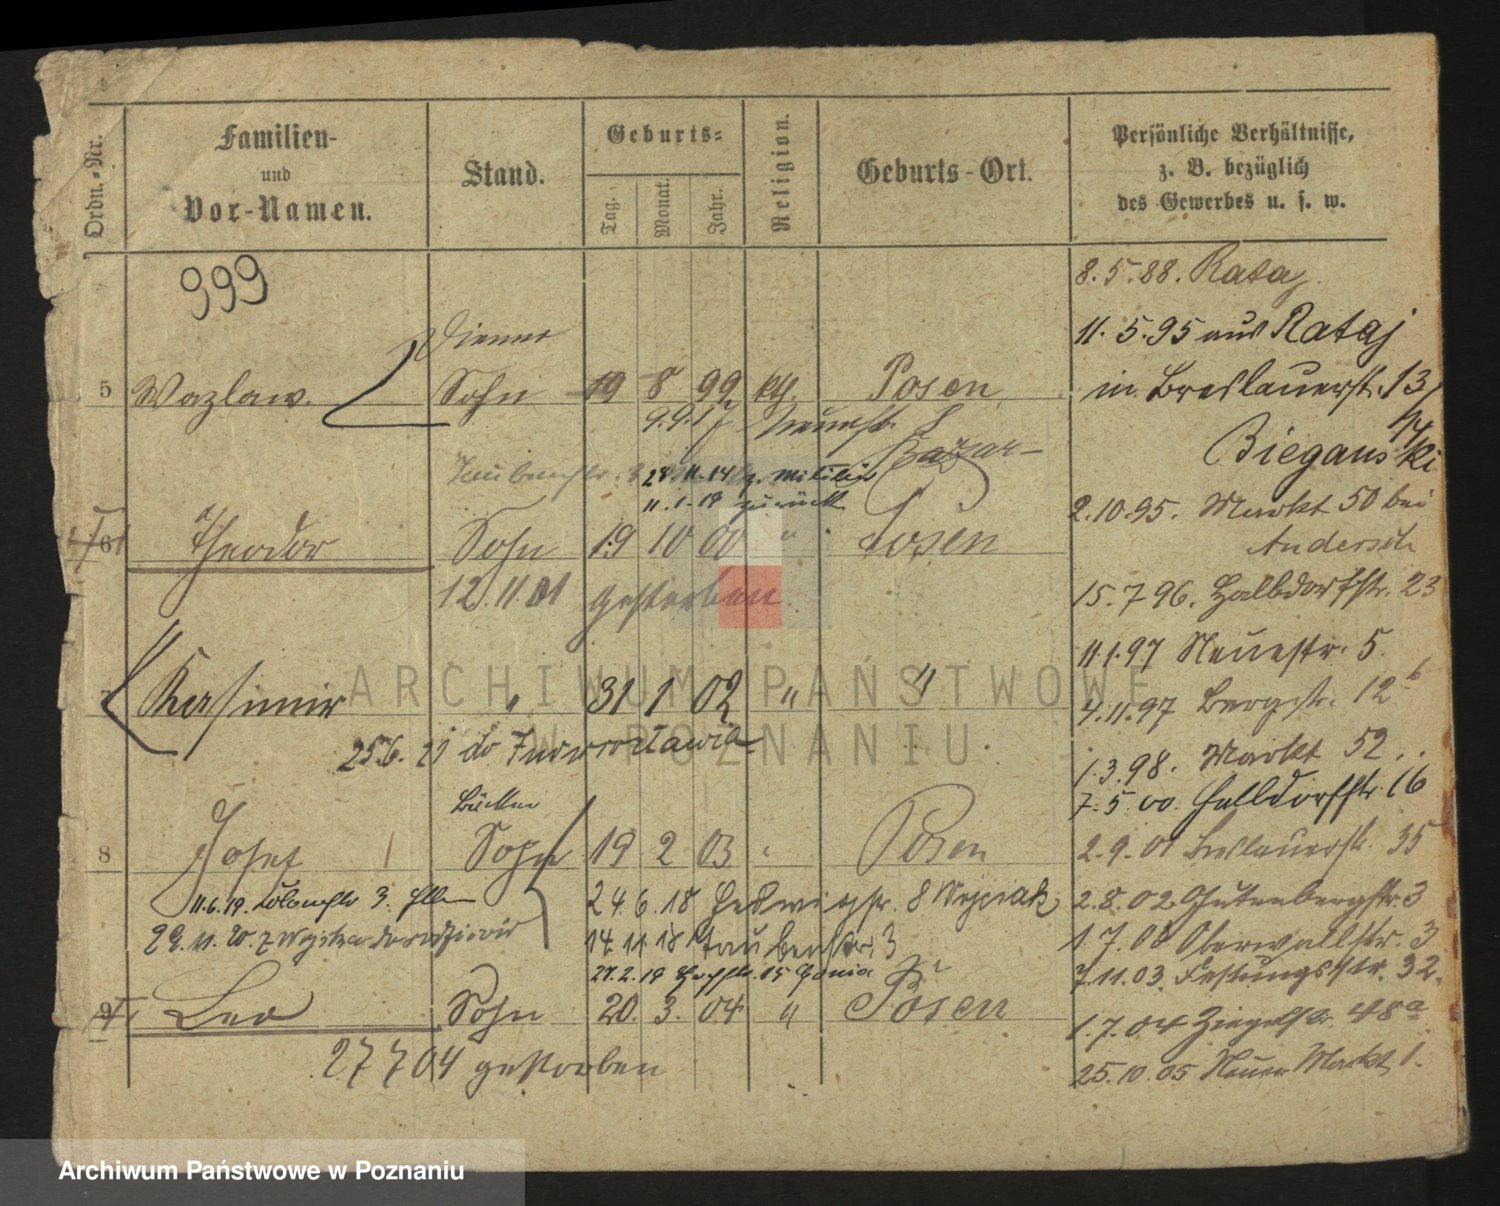 Ordn.-Nr.
Familien-
und
Vor-Namen.
Stand.
Geburts-
Tag.
Monat.
Jahr.
Religion.
Geburts-Ort.
Persönliche Verhältnisse,
z. B. bezüglich
des Gewerbes u. s. w.
999
8. 5. 88. Rataj.
Diener
11. 5. 95 aus Rataj
5 Wazlaw. Sohn 19 8 99 kth. Posen
in Breslauerstr. 13/14
9.9.17 Neuestr.
Bazar-
Bieganski
Taubenstr. 28.11.14 z. Militär
11.1.19 zurück
2.10.95. Markt 50 bei
Andersch
6 Theodor Sohn 19 10 00 " Posen
12.11.01 gestorben
15. 7 96. Halbdorfstr. 23
11.1.97 Neuestr. 5.
7 Kasimir " 31 1 02 " "
4.11.97 Bergstr. 12b
25.6.21 do Inowrocławia
1.3.98. Markt 52.
7. 5. 00. Halbdorfstr. 16
8 Josef Sohn 19 2 03 " Posen
2. 9. 01 Breslauerstr. 35
11.6.19. 3.
24.6.18 Hedwigstr. 8 Wojciak
2.8.02 Gutenbergstr. 3
29.11.20. z
14.11.18 Taubenstr. 3
1.7.03 Oberwallstr. 3
27.2.19 15
7.11.03. Festungsstr. 32.
9 Leo Sohn 20. 3. 04 " Posen
1.7.04 Ziegelstr. 48a
27 7 04 gestorben
25.10.05 Neuer Markt 1.
ARCHIWUM PAŃSTWOWE
W POZNANIU
Archiwum Państwowe w Poznaniu